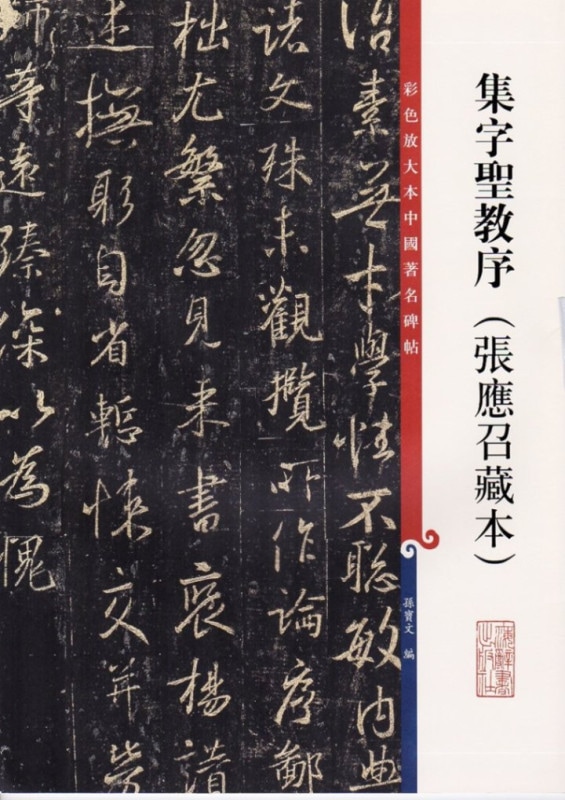 集字聖教序（張應召藏本）
彩色放大本中國著名碑帖
孫寶文 編
海辭書出版社
治素無才學性不聰敏內典
諸文殊未觀攬所作論序鄙
拙尤繁忽見來書褒揚讃
述撫躬自省慙悚交并勞
師等遠臻深以為愧